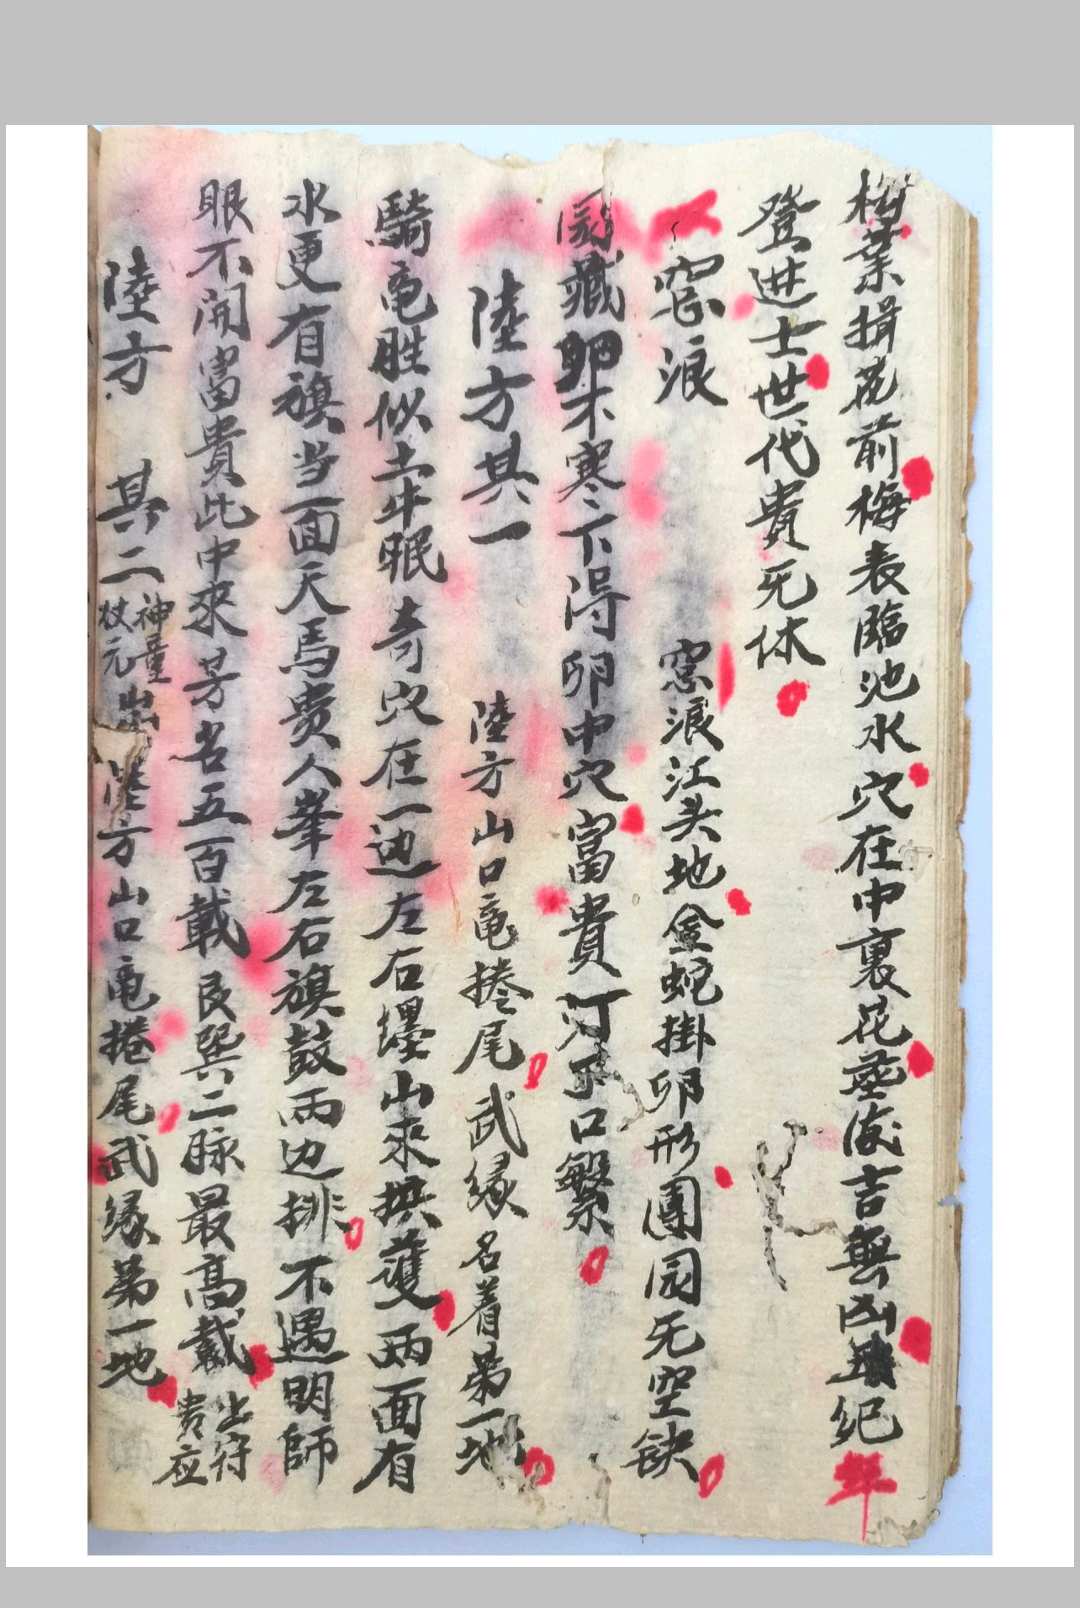 葉揖花前梅表臨池水穴在中裏花蕋後吉無凶紀年
登进士世代貴无休
窓浪 窓浪江头地金蛇掛卵形團园无空缺
藏卵不寒下得卵中穴富貴口繁
陸方其一 陸方山口黾捲尾武缘名着第一地
騎黾胜似土牛眠奇穴在一边左右纓山来拱護両面有
水更有旗当面天馬贵人峯左右旗鼓両边排不遇明師
眼不開富貴此中來芳名五百載艮巽二脉最高戴出符贵应
陸方 其二 神童出杖元 陸方山口黾捲尾武缘第一地